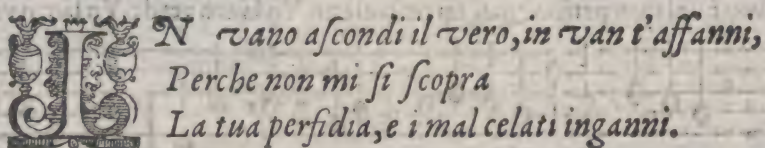 IN vano aſcondi il vero, in van t'affanni,
Perche non mi ſi ſcopra
La tua perfidia, e i mal celati inganni.